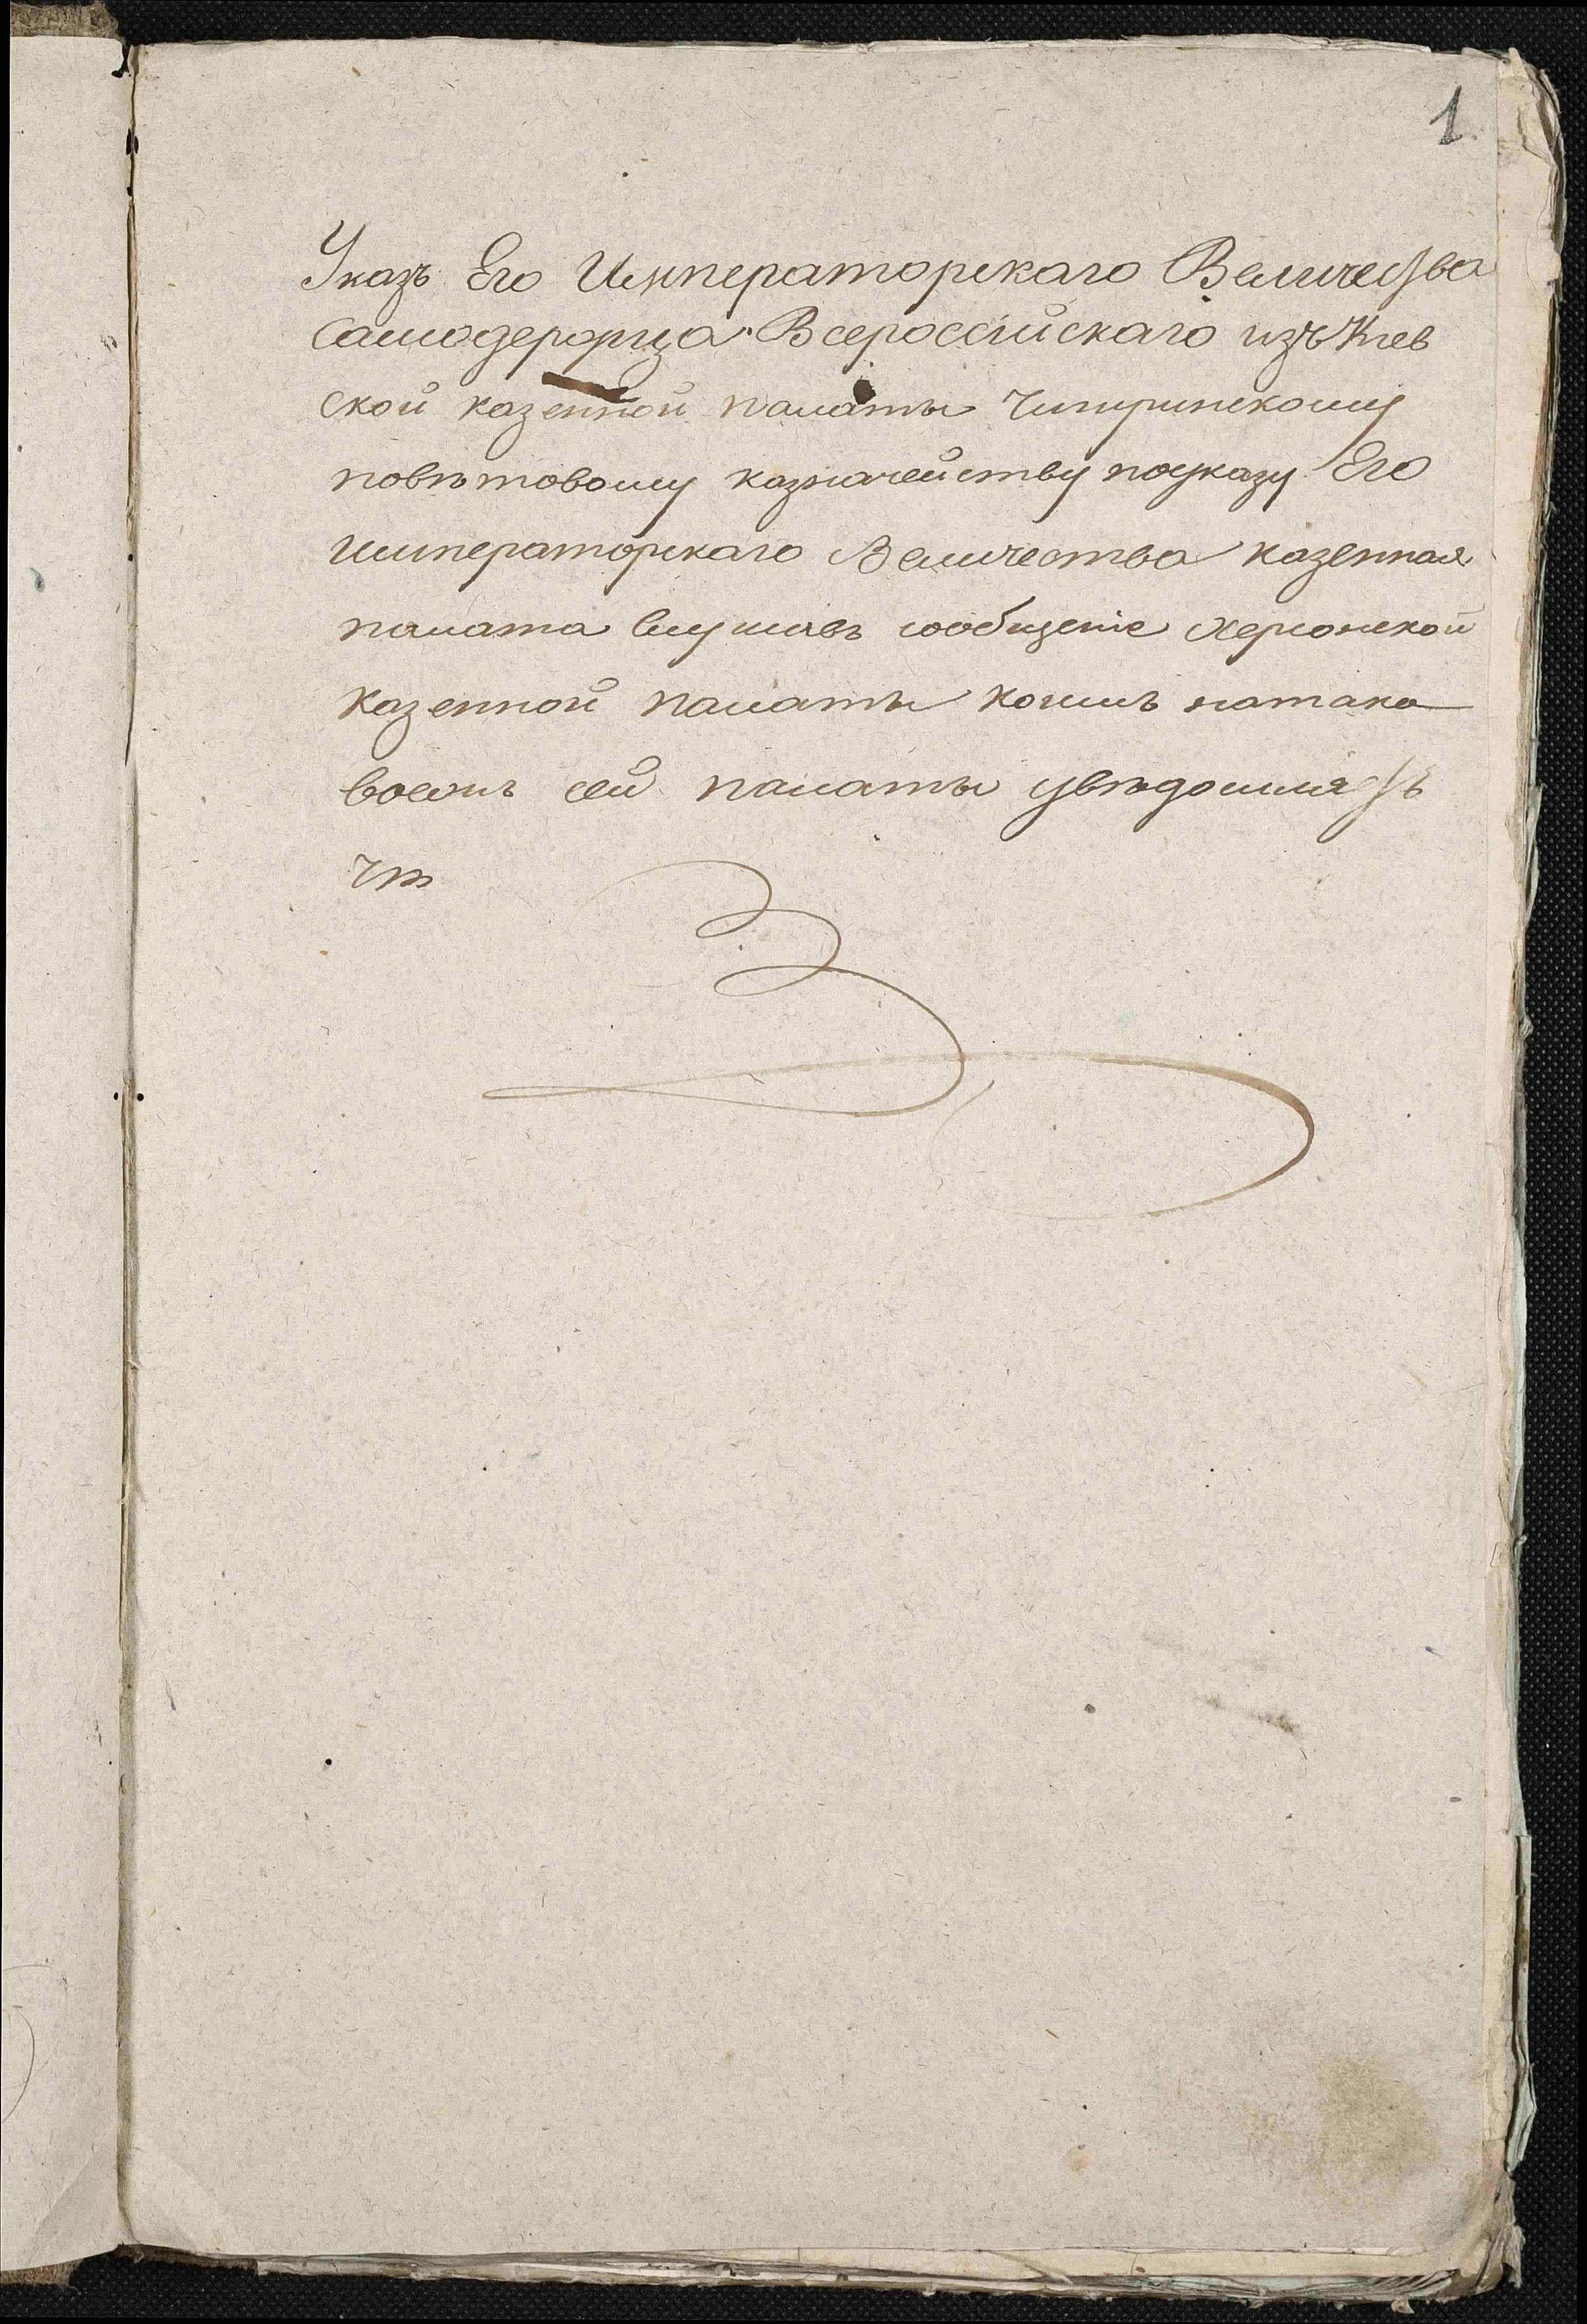 1.
Указъ Его Императорскаго Величества
Самодержца Всероссійскаго изъ Киев
ской казенной палаты Чигиринскому
повѣтовому казначейству поуказу Его
императорскаго Величества казенная
палата слушавъ сообщеніе херсонской
казенной палаты коимъ натако
вомъ сей палаты увѣдомляетъ
что